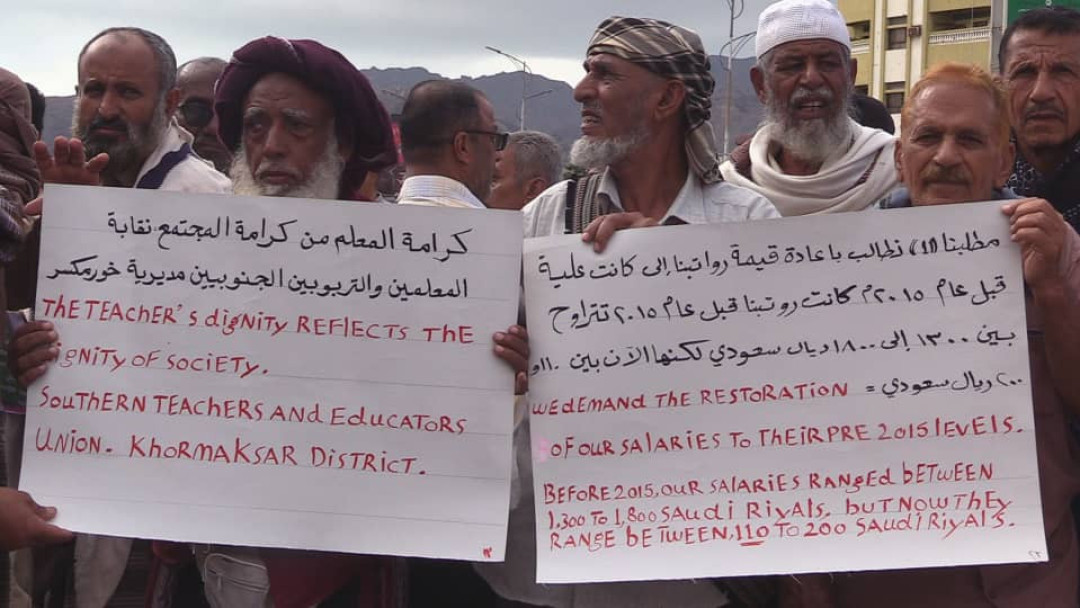 كرامة المعلم من كرامة المجتمع. نقابة
المعلمين والتربويين الجنوبيين مديرية خورمكسر
THE TEACHER'S dignity REFLECTS THE
ignity OF SOCIETY.
SOUTHERN TEACHERS AND EdUCATORS
UNION. KHORMAKSAR DISTRICT.
مطلبنا (١) نطالب باعادة قيمة رواتبنا إلى كانت علية
قبل عام ٢٠١٥م كانت روتبنا قبل عام ٢٠١٥ تتراوح
بين ١٣٠٠ إلى ١٨٠٠ ريال سعودي لكنها الآن بين ١١٠ و
٢٠٠ ريال سعودي =
WE dEMANd THE RESTORATION
OF OUR SALARIES TO THEIR PRE 2015 lEVELS.
BEFORE 2015, OUR SALARIES RANGEd bETWEEN
1,300 TO 1,800 SAUdi RiyAlS, bUT NOW THEY
RANGE bETWEEN, 110 TO 200 SAUdi RiyAlS.